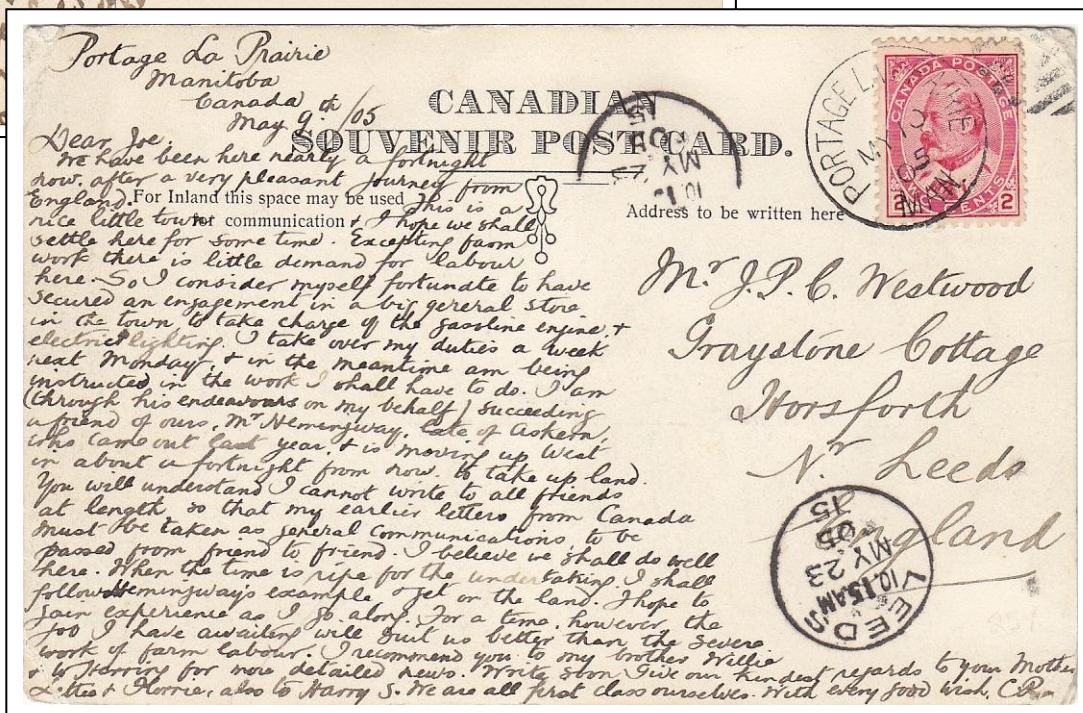 Portage La Prairie
Manitoba
Canada
May 9th /05
CANADIAN
SOUVENIR POST CARD.
For Inland this space may be used
for communication
Address to be written here
Dear Joe,
We have been here nearly a fortnight
now, after a very pleasant journey from
England. This is a
nice little town & I hope we shall
settle here for some time. Excepting farm
work there is little demand for labour
here. So I consider myself fortunate to have
secured an engagement in a big general store
in the town to take charge of the gasoline engine &
electric lighting. I take over my duties a week
next Monday, & in the meantime am being
instructed in the work I shall have to do. I am
(through his endeavours on my behalf) succeeding
a friend of ours, Mr Hemingway, late of Askern,
who came out last year, & is moving up West
in about a fortnight from now, to take up land.
You will understand I cannot write to all friends
at length so that my earlier letters from Canada
must be taken as general communications, to be
passed from friend to friend. I believe we shall do well
here. When the time is ripe for the undertaking I shall
follow Hemingways example & get on the land. I hope to
gain experience as I go along. For a time, however, the
job I have awaiting will suit us better than the severe
work of farm labour. I recommend you to my brother Willie
& to for more detailed news. Write soon. Give our kindest regards to your Mother
& Florrie, also to Harry S. We are all first class ourselves. With every good wish,
CANADA POSTAGE
2 TWO CENTS 2
PORTAGE LA PRAIRIE
MY 10
05
MAN
MY 23
05
Mr J. P. C. Westwood
Graystone Cottage
Horsforth
Nr Leeds
England
LEEDS
10.15 AM
MY 23
05
15